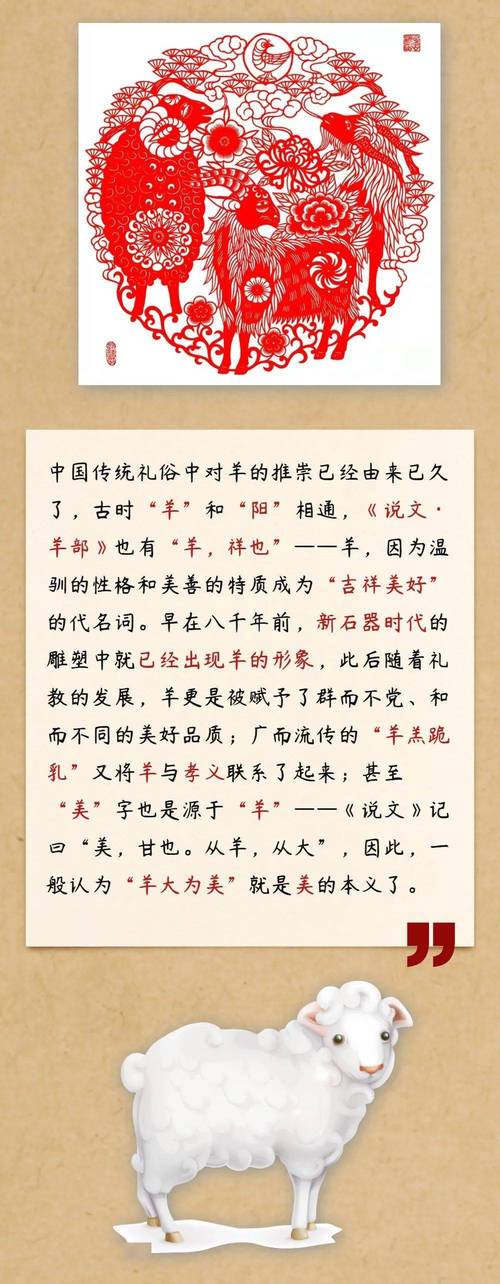 中国传统礼俗中对羊的推崇已经由来已久
了，古时“羊”和“阳”相通，《说文·
羊部》也有“羊，祥也”——羊，因为温
驯的性格和美善的特质成为“吉祥美好”
的代名词。早在八千年前，新石器时代的
雕塑中就已经出现羊的形象，此后随着礼
教的发展，羊更是被赋予了群而不党、和
而不同的美好品质；广而流传的“羊羔跪
乳”又将羊与孝义联系了起来；甚至
“美”字也是源于“羊”——《说文》记
曰“美，甘也。从羊，从大”，因此，一
般认为“羊大为美”就是美的本义了。